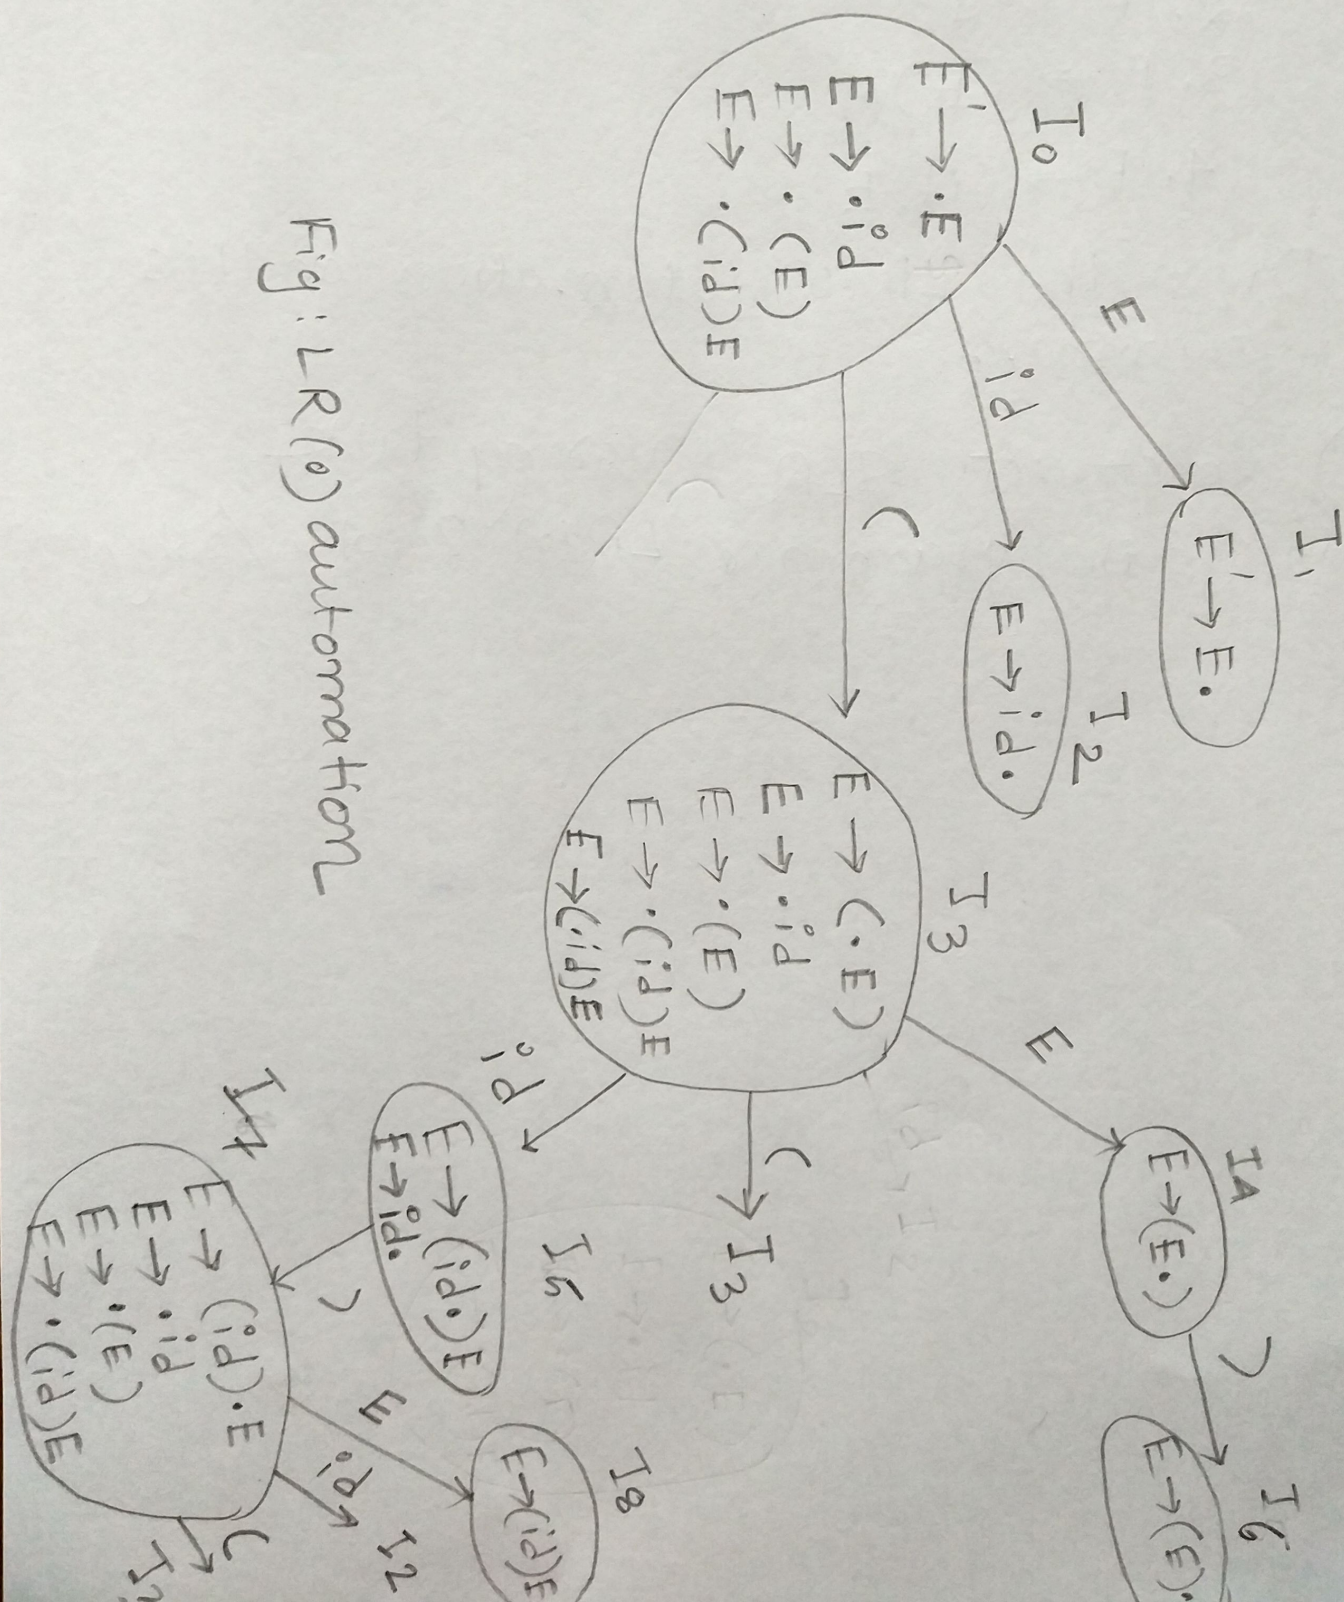 I0
E' → .E
E → .id
E → .(E)
E → .(id)E
E
id
(
I1
E' → E.
I2
E → id.
I3
E → (.E)
E → .id
E → .(E)
E → .(id)E
E → (.id)E
E
(
I3
id
I4
E → (E.)
)
I6
E → (E).
I5
E → (id.)E
E → id.
)
I7
E → (id).E
E → .id
E → .(E)
E → .(id)E
E
I8
E → (id)E
id
I2
(
Fig: LR(0) automation